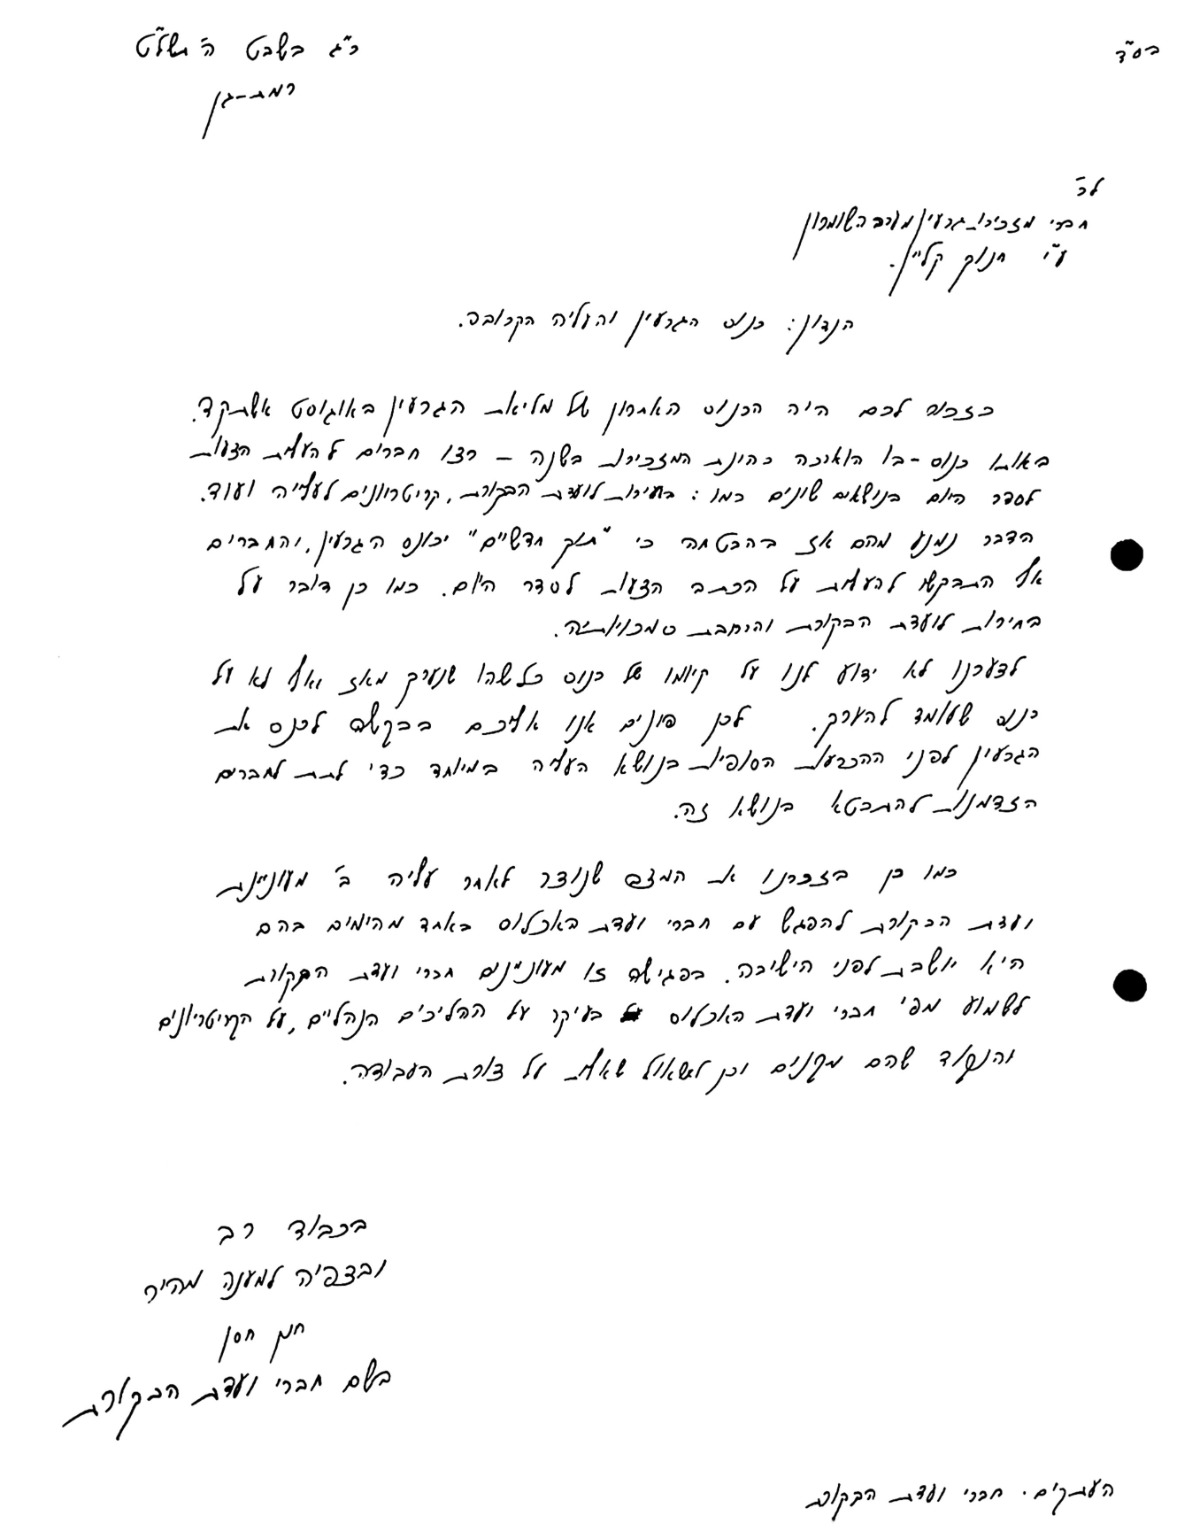 בס"ד
כ"ג בשבט ה' תשל"ט
רמת-גן
לכ'
חברי מזכירות גרעין מערב השומרון
ע"י חנוך קליין.
הנדון: כנוס הגרעין והעליה הקרובה.
כזכור לכם היה הכנוס האחרון של מליאת הגרעין באוגוסט אשתקד.
באותו כנוס - בו הוארכה כהונת המזכירות בשנה - רצו חברים להעלות הצעות
לסדר היום בנושאים שונים כמו: בחירות לועדת הבקורת, קריטריונים לעליה ועוד.
הדבר נמנע מהם אז בהבטחה כי "תוך חדשיים" יכונס הגרעין, והחברים
אף התבקשו להעלות על הכתב הצעות לסדר היום. כמו כן דובר על
בחירות לועדת הבקורת והרחבת סמכויותיה.
לצערנו לא ידוע לנו על קיומו של כנוס כלשהו שנערך מאז ואף לא על
כנוס שעומד להערך. לכן פונים אנו אליכם בבקשה לכנס את
הגרעין לפני ההכרעות הסופיות בנושא העליה במיוחד כדי לתת לחברים
הזדמנות להתבטא בנושא זה.
כמו כן בזכרנו את המצב שנוצר לאחר עליה ב' מעוניינת
ועדת הבקורת להפגש עם חברי ועדת האכלוס באחד מהימים בהם
היא יושבת לפני הישיבה. בפגישה זו מעוניינים חברי ועדת הבקורת
לשמוע מפי חברי ועדת האכלוס בעיקר על ההליכים הנהליים, על הקריטריונים
והנקוד שהם מקנים וכן לשאול שאלות על צורת העבודה.
בכבוד רב
ובצפיה למענה מהיר
חנן חסן
בשם חברי ועדת הבקורת
העתקים: חברי ועדת הבקורת